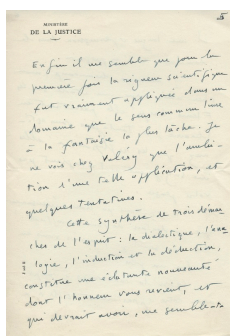 5
MINISTÈRE
DE LA JUSTICE
Enfin il me semble que pour la
première fois la rigueur scientifique
fut vraiment appliquée dans un
domaine que le sens commun livre
à la fantaisie la plus lâche. Je
ne vois chez Valéry que l'ambi-
tion d'une telle application, et
quelques tentatives.
Cette synthèse de trois démar
ches de l'esprit : la dialectique, l'ana
logie, l'induction et la déduction,
constitue une éclatante nouveauté
dont l'honneur vous revient, et
qui devrait avoir, me semble-t-